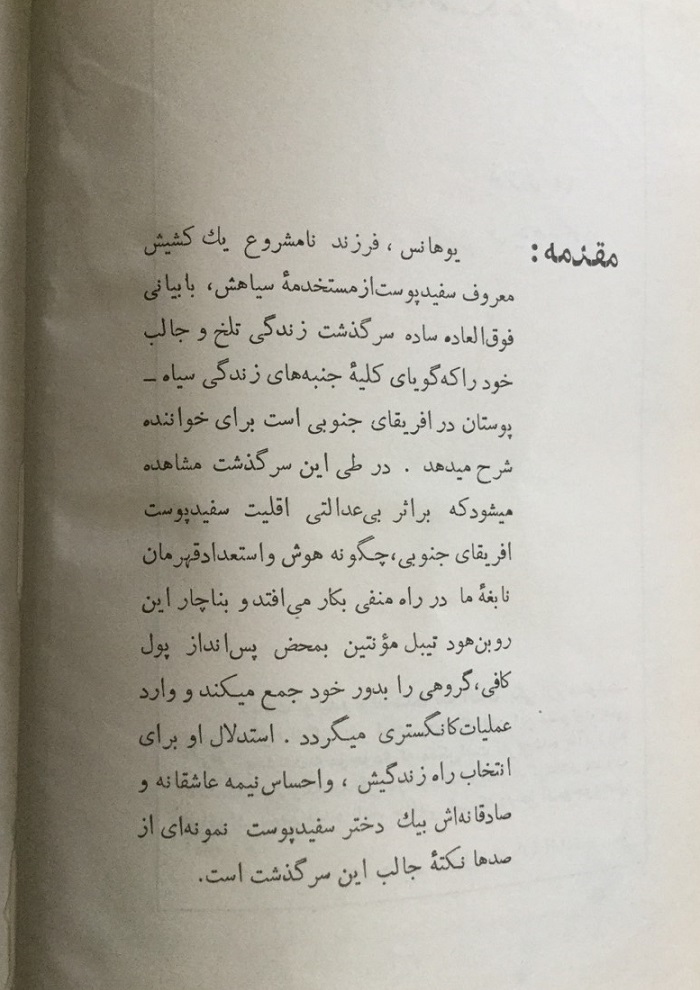 مقدمه :
یوهانس ، فرزند نامشروع یك کشیش
معروف سفیدپوست از مستخدمهٔ سیاهش، با بیانی
فوق‌العاده ساده سرگذشت زندگی تلخ و جالب
خود را که گویای کلیهٔ جنبه‌های زندگی سیاه ـ
پوستان در افریقای جنوبی است برای خواننده
شرح میدهد . در طی این سرگذشت مشاهده
میشود که براثر بی‌عدالتی اقلیت سفیدپوست
افریقای جنوبی، چگونه هوش و استعداد قهرمان
نابغهٔ ما در راه منفی بکار می‌افتد و بناچار این
روبن‌هود تیبل مؤنتین بمحض پس‌انداز پول
کافی، گروهی را بدور خود جمع میکند و وارد
عملیات کانگستری میگردد . استدلال او برای
انتخاب راه زندگیش ، و احساس نیمه عاشقانه و
صادقانه‌اش بیك دختر سفیدپوست نمونه‌ای از
صدها نکتهٔ جالب این سرگذشت است.